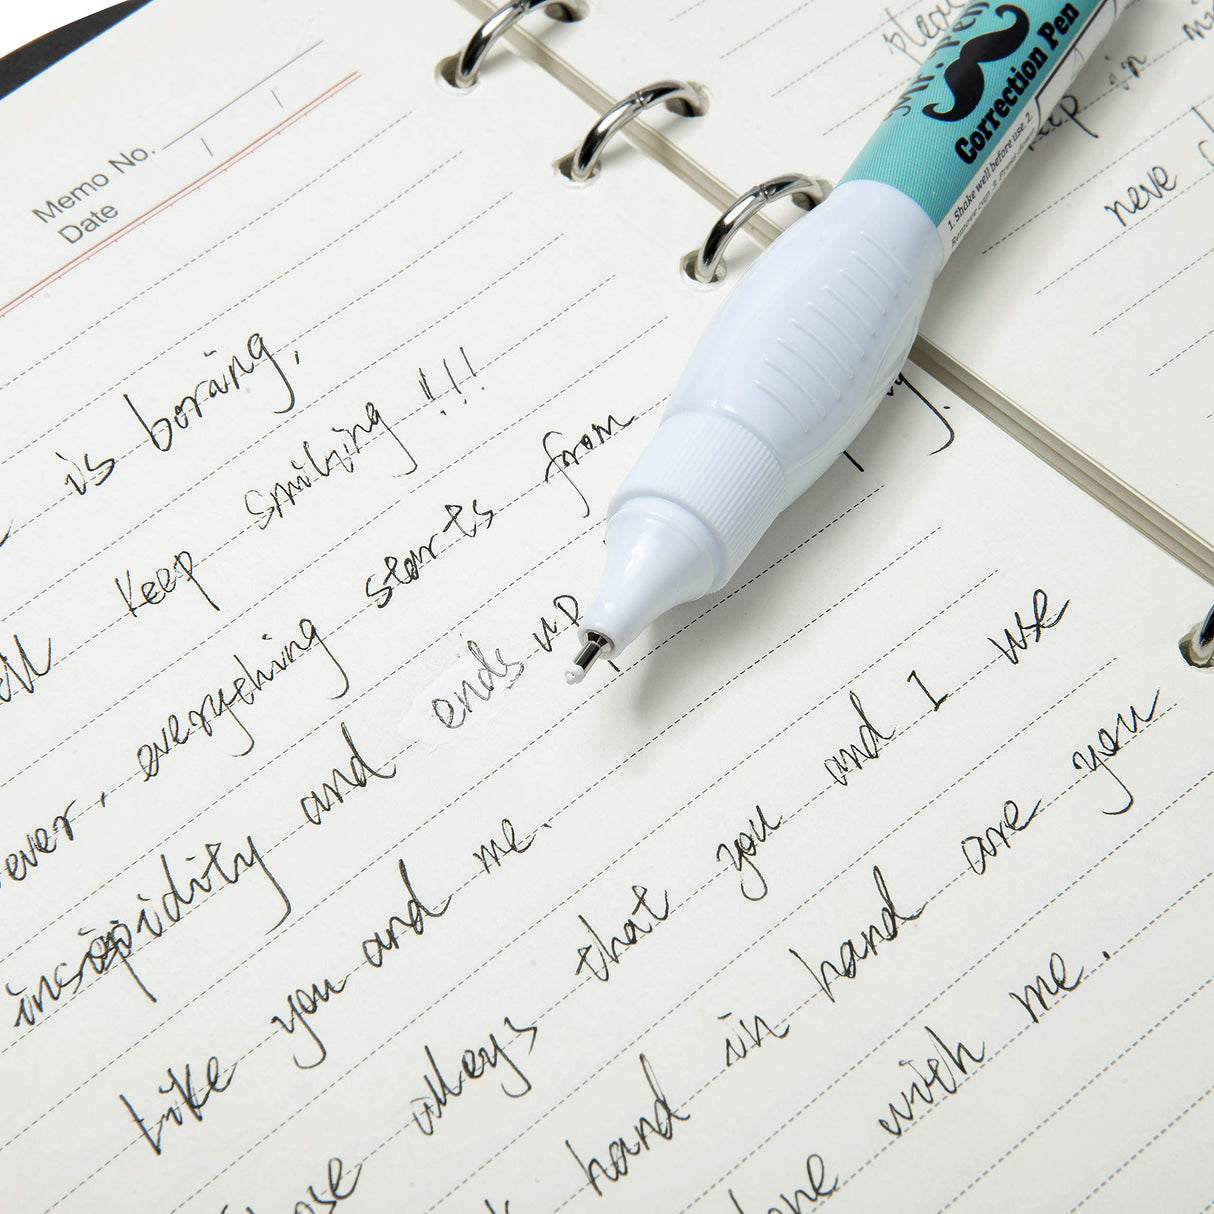 Memo No.
Date
is boring,
keep smiling !!!
ever, everything starts from
insipidity and ends up
Like you and me.
alleys that you and I use
hand in hand are you
with me.
Mr. Pen
Correction Pen
1. Shake well before use. 2.
Remove cap. 3. Press down
in
neve